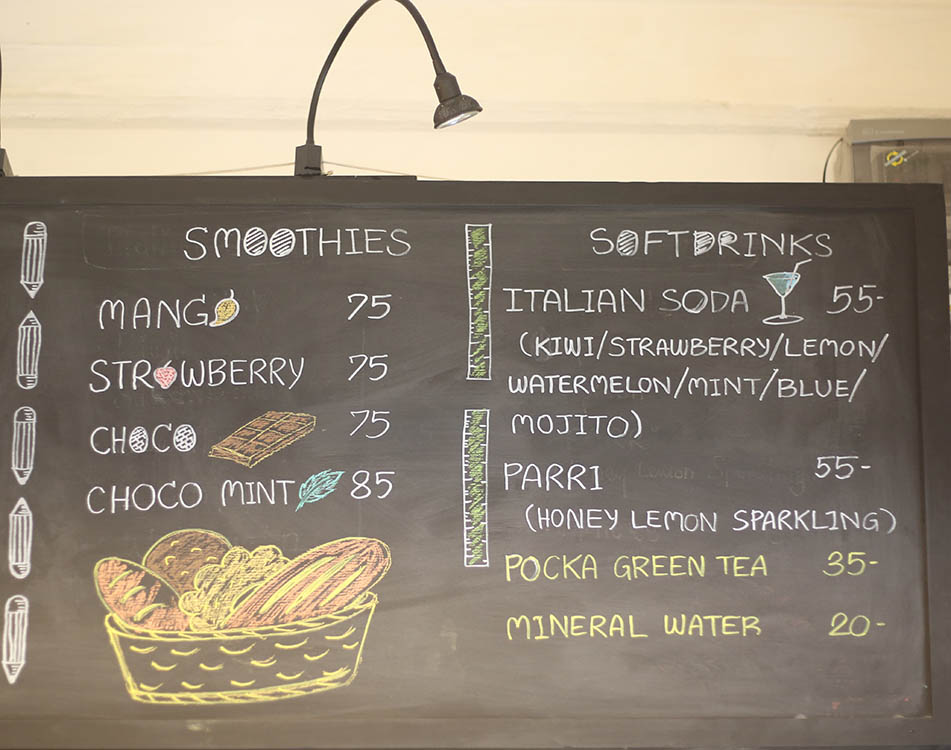 SMOOTHIES
MANGO 75
STRAWBERRY 75
CHOCO 75
CHOCO MINT 85
SOFTDRINKS
ITALIAN SODA 55-
(KIWI/STRAWBERRY/LEMON/
WATERMELON/MINT/BLUE/
MOJITO)
PARRI 55-
(HONEY LEMON SPARKLING)
POCKA GREEN TEA 35-
MINERAL WATER 20-